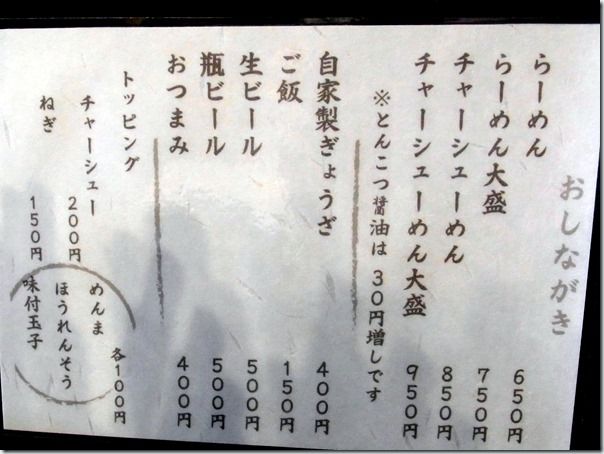 おしながき
らーめん 650円
らーめん大盛 750円
チャーシューめん 850円
チャーシューめん大盛 950円
※とんこつ醤油は30円増しです
自家製ぎょうざ 400円
ご飯 150円
生ビール 500円
瓶ビール 500円
おつまみ 400円
トッピング
チャーシュー 200円
ねぎ 150円
各100円
めんま
ほうれんそう
味付玉子